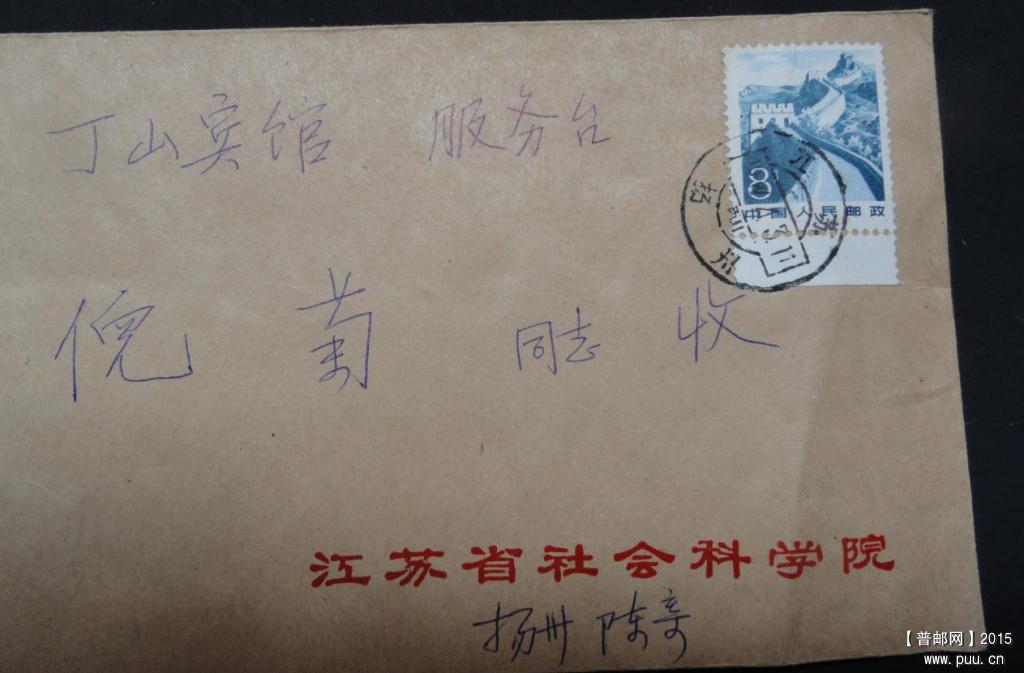 丁山宾馆 服务台
8
中国人民邮政
江苏
扬州
倪菊 同志 收
江苏省社会科学院
扬州 陈奇
【普邮网】2015
www.puu.cn